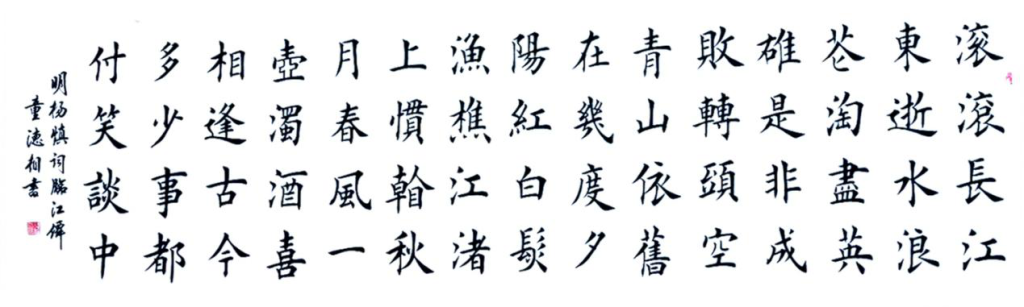 滾滾長江
東逝水浪
花淘盡英
雄是非成
敗轉頭空
青山依舊
在幾度夕
陽紅白髮
漁樵江渚
上慣看秋
月春風一
壺濁酒喜
相逢古今
多少事都
付笑談中
明杨慎词臨江僊
童德相書